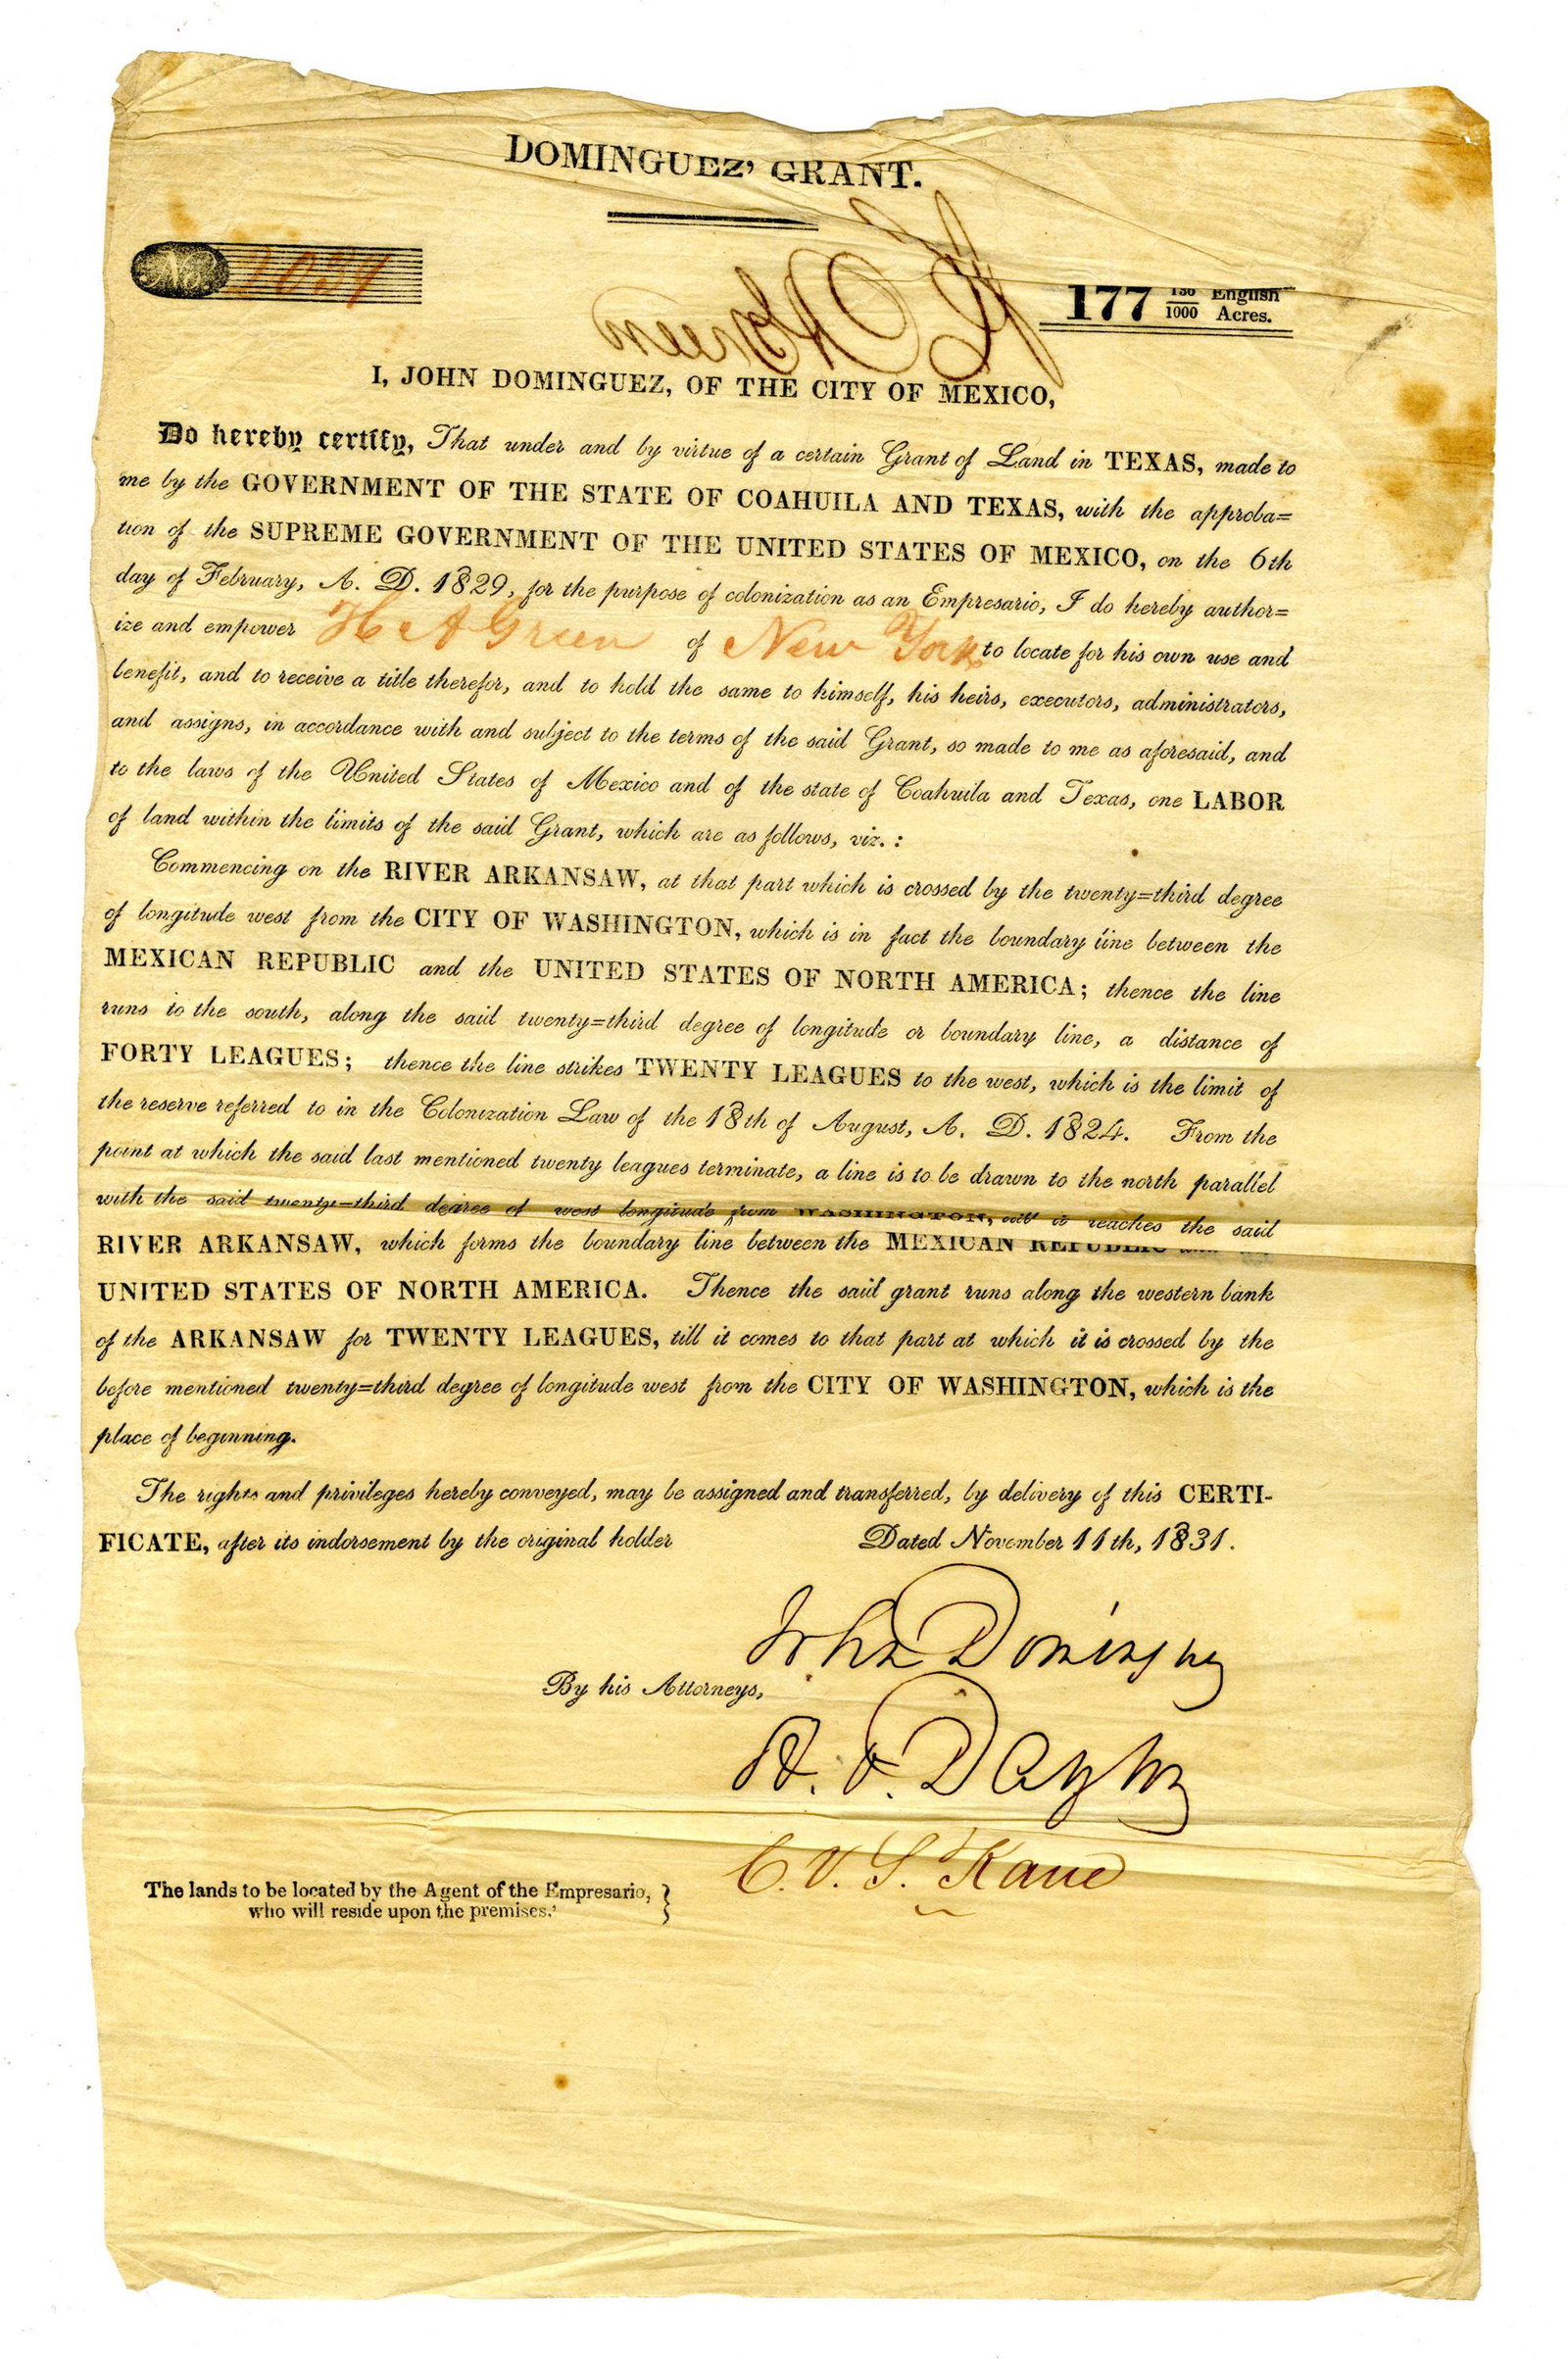 DOMINGUEZ' GRANT.
No. 1039
177 136/1000 English Acres.
I, JOHN DOMINGUEZ, OF THE CITY OF MEXICO,
Do hereby certify, That under and by virtue of a certain Grant of Land in TEXAS, made to
me by the GOVERNMENT OF THE STATE OF COAHUILA AND TEXAS, with the approba=
tion of the SUPREME GOVERNMENT OF THE UNITED STATES OF MEXICO, on the 6th
day of February, A. D. 1829, for the purpose of colonization as an Empresario, I do hereby author=
ize and empower H A Green of New York to locate for his own use and
benefit, and to receive a title therefor, and to hold the same to himself, his heirs, executors, administrators,
and assigns, in accordance with and subject to the terms of the said Grant, so made to me as aforesaid, and
to the laws of the United States of Mexico and of the state of Coahuila and Texas, one LABOR
of land within the limits of the said Grant, which are as follows, viz. :
Commencing on the RIVER ARKANSAW, at that part which is crossed by the twenty=third degree
of longitude west from the CITY OF WASHINGTON, which is in fact the boundary line between the
MEXICAN REPUBLIC and the UNITED STATES OF NORTH AMERICA; thence the line
runs to the south, along the said twenty=third degree of longitude or boundary line, a distance of
FORTY LEAGUES; thence the line strikes TWENTY LEAGUES to the west, which is the limit of
the reserve referred to in the Colonization Law of the 18th of August, A. D. 1824. From the
point at which the said last mentioned twenty leagues terminate, a line is to be drawn to the north parallel
with the said twenty=third degree of west longitude from WASHINGTON, till it reaches the said
RIVER ARKANSAW, which forms the boundary line between the MEXICAN REPUBLIC
UNITED STATES OF NORTH AMERICA. Thence the said grant runs along the western bank
of the ARKANSAW for TWENTY LEAGUES, till it comes to that part at which it is crossed by the
before mentioned twenty=third degree of longitude west from the CITY OF WASHINGTON, which is the
place of beginning.
The rights and privileges hereby conveyed, may be assigned and transferred, by delivery of this CERTI-
FICATE, after its indorsement by the original holder Dated November 11th, 1831.
John Dominguez
By his Attorneys,
C. V. S. Kane
The lands to be located by the Agent of the Empresario,
who will reside upon the premises.